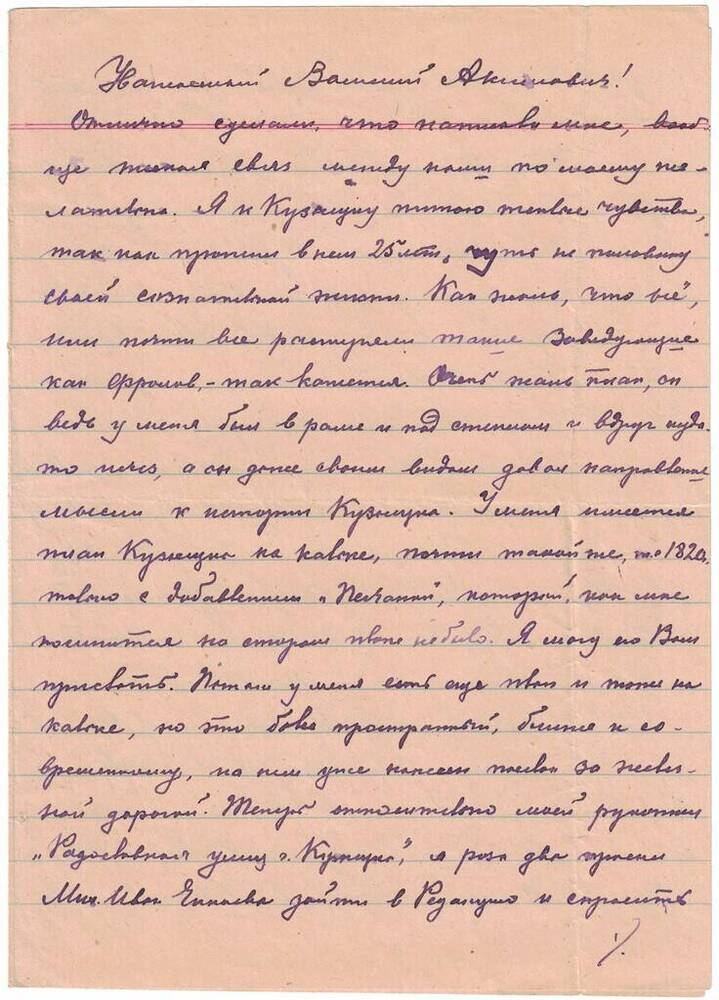 Василий Акимович!
Отлично сделали, что написали мне, вооб-
ще живая связь между нами по моему же-
лательна. Я к Кузнецку питаю теплые чувства,
так как прожил в нем 25 лет, чуть не половину
своей сознательной жизни. Как жаль, что всё,
или почти все растеряли такие заведующие
как Фролов, - так кажется. Очень жаль план, он
ведь у меня был в раме и под стеклом и вдруг куда-
то исчез, а он даже своим видом давал направление
мысли к истории Кузнецка. У меня имеется
план Кузнецка на кальке, почти такой же, 1820г.
только с добавлением „Песчаной", который, как мне
помнится на старом плане не было. Я могу его Вам
прислать. Потом у меня есть еще план и тоже на
кальке, но это более пространный, ближе к со-
временному, на нем уже нанесен поселок за желез-
ной дорогой. Теперь относительно моей рукописи
„Родословная улиц г. Кузнецка", я раза два просил
Мих. Иван. зайти в Редакцию и спросить
·/.